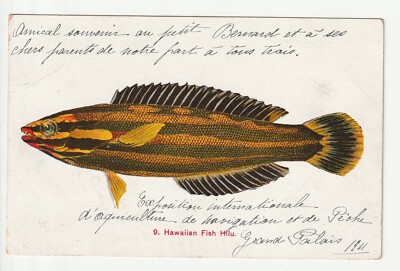 Amical souvenir au petit Bernard et à ses
chers parents de notre part à tous trois.
Exposition internationale
d'aquiculture de navigation et de Pêche
9. Hawaiian Fish Hilu.
Grand Palais 1911